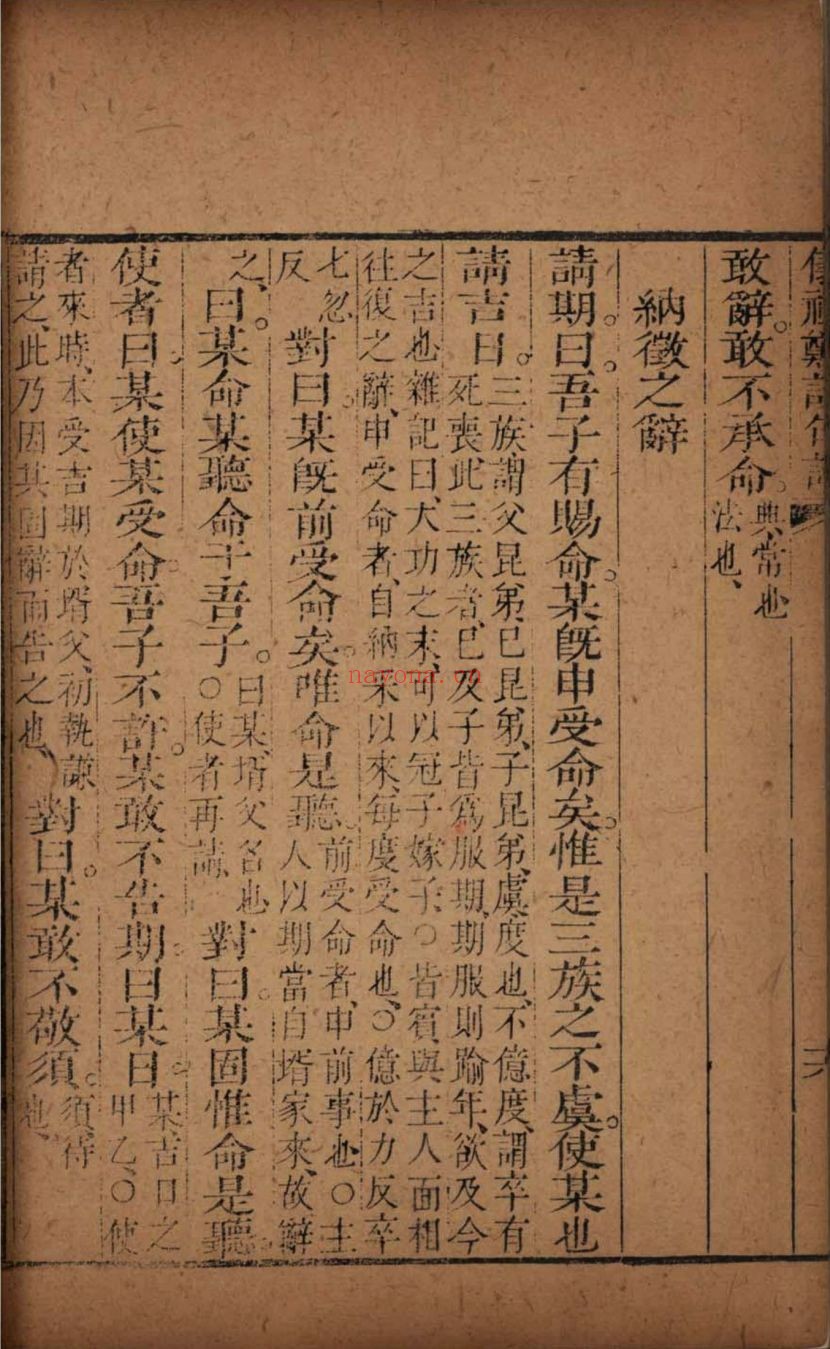 儀禮鄭註句讀
敢辭。敢不承命。典常也
法也、
納徵之辭
請期。曰。吾子有賜命。某旣申受命矣。惟是三族之不虞。使某也
請吉日。三族、謂父昆弟、已昆弟、子昆弟、虞度也、不億度、謂卒有
死喪、此三族者、已及子皆爲服期、期服則踰年、欲及今
之吉也、雜記曰、大功之末、可以冠子嫁子、○皆賓與主人面相
往復之辭、申受命者、自納采以來、每度受命也、○億於力反卒
七忽
反
對曰。某旣前受命矣。唯命是聽。前受命者、申前事也、○主
人以期當自壻家來、故辭
之、
曰。某命某聽命于吾子。曰某、壻父名也
○使者再請、
對曰。某固惟命是聽。
使者曰。某使某受命。吾子不許。某敢不告期。曰某日。某吉日之
甲乙、○使
者來時、本受吉期於壻父、初執謙
請之、此乃因其固辭而告之也、
對曰。某敢不敬須。須、待
也、
nayona.cn